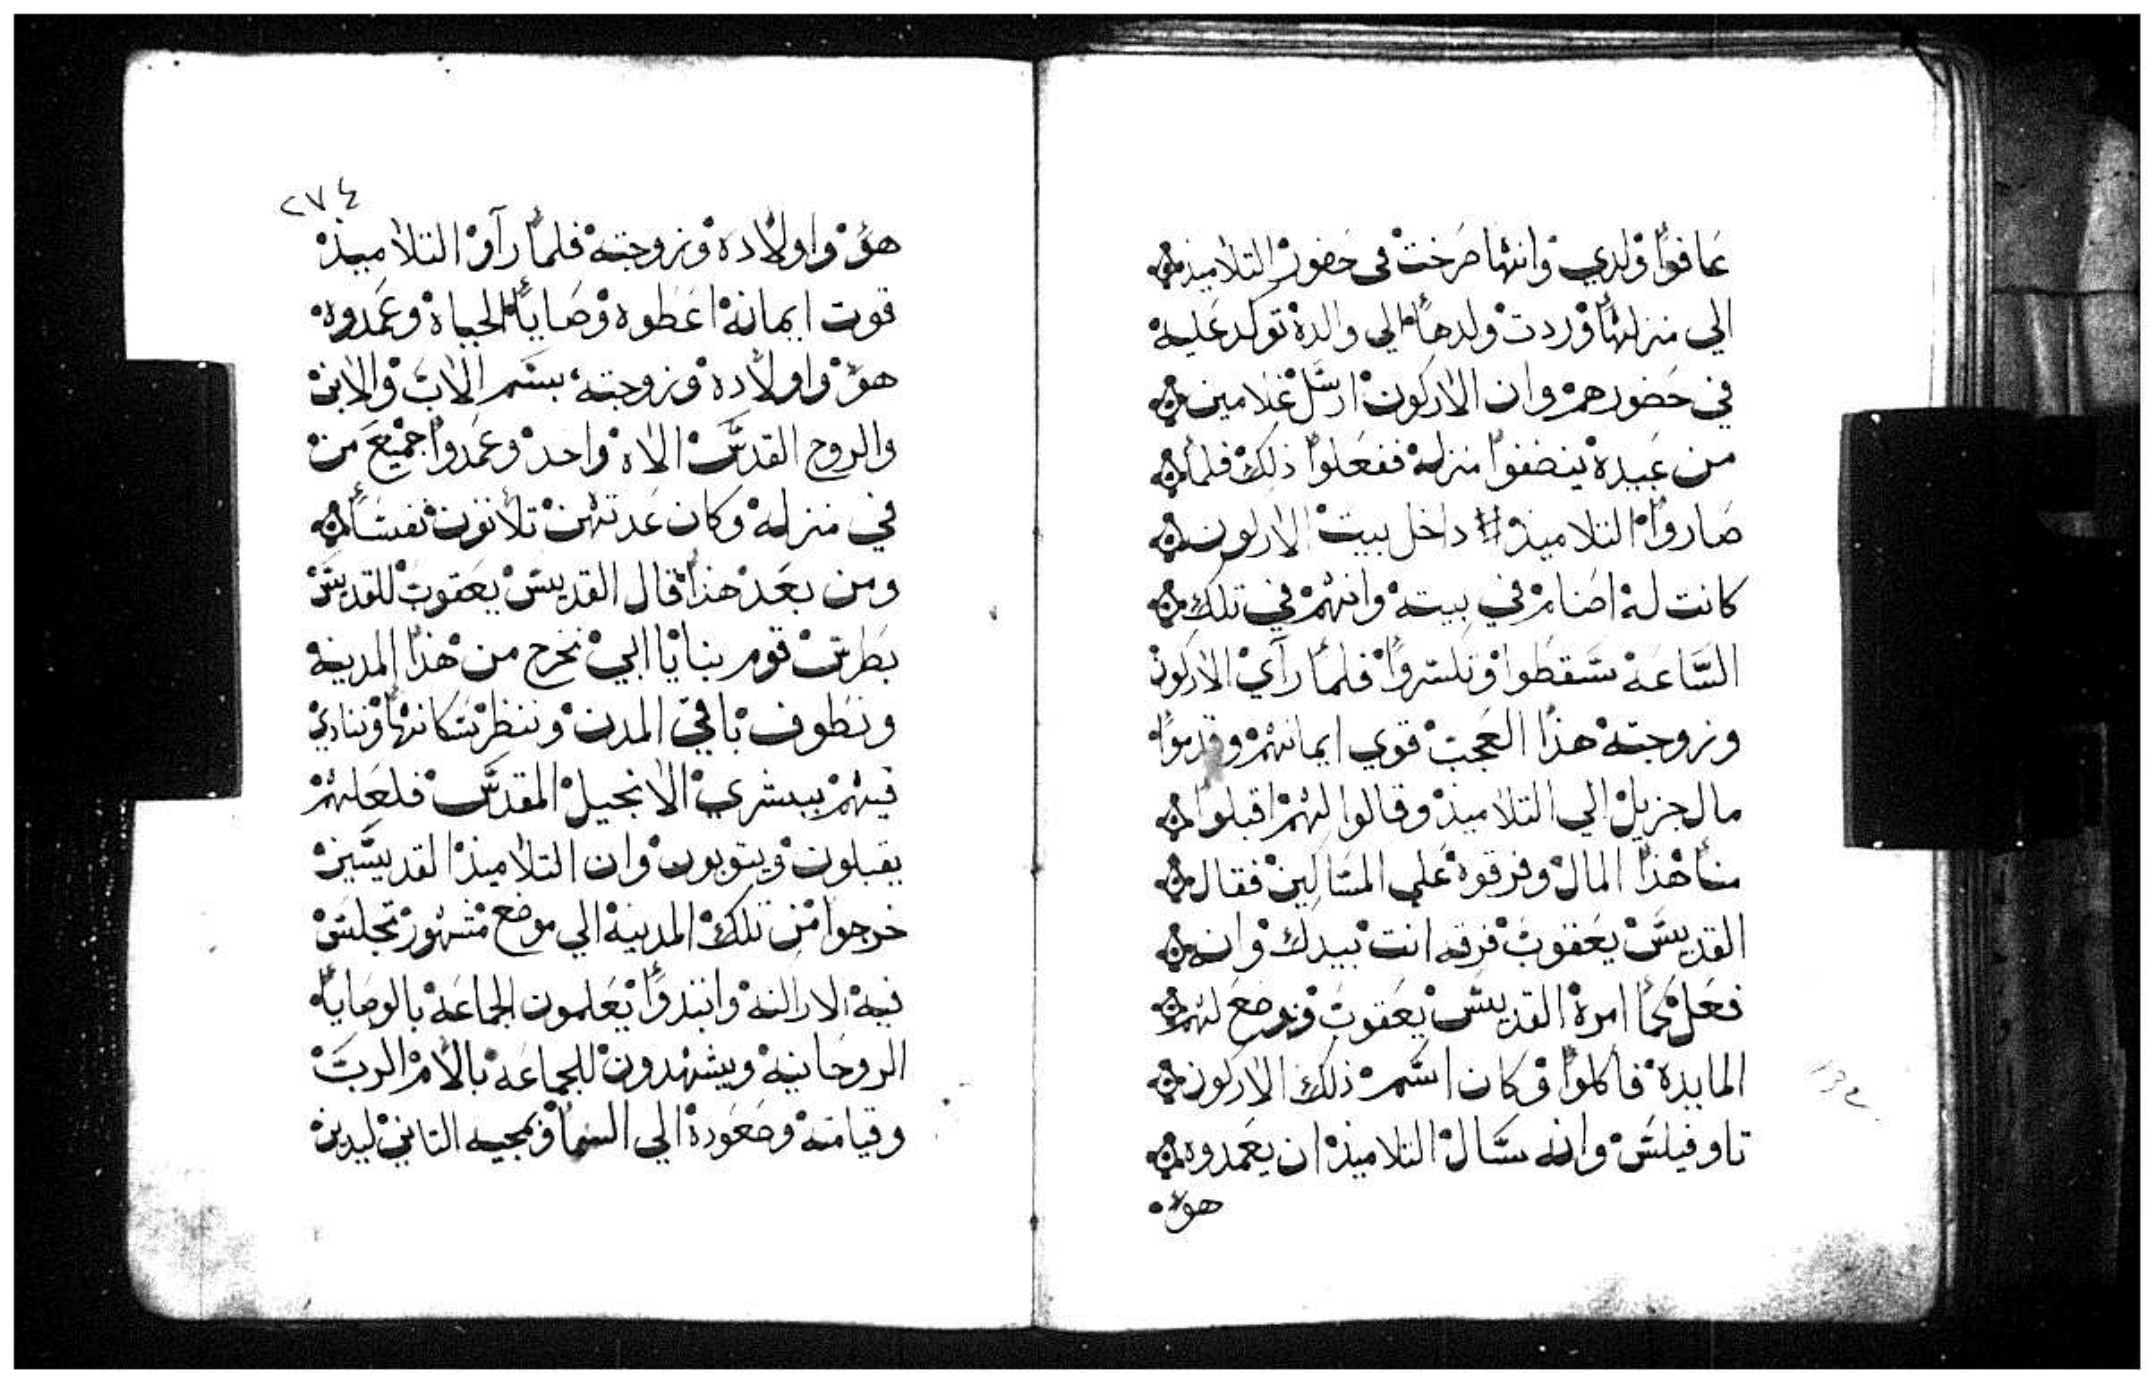 عافوا ولدي وانها صرخت في حضور التلاميذ
الي منزلها وردت ولدها الي والده توكد عليه
في حضورهم وان الاركون ارسل غلامين
من عبيده ينضفوا منزله ففعلوا ذلك فلما
صاروا التلاميذ داخل بيت الاركون
كانت له اصنام في بيته وانهم في تلك
الساعه سقطوا وتكسروا فلما راي الاركون
وزوجته هذا العجب قوي ايمانهم وقدموا
مال جزيل الي التلاميذ وقالوا لهم اقبلوا
منا هذا المال وفرقوه علي المساكين فقال
القديس يعقوب فرقه انت بيدك وانه
فعل كما امره القديس يعقوب ووضع لهم
المايده فاكلوا وكان اسم ذلك الاركون
تاوفيلس وانه سال التلاميذ ان يعمدوه
هو
٢٧٤
هو واولاده وزوجته فلما راو التلاميذ
قوت ايمانه اعطوه وصايا الحياه وعمدوه
هو واولاده وزوجته بسم الاب والابن
والروح القدس الاه واحد وعمدوا جميع من
في منزله وكان عدتهن تلاتون نفسا
ومن بعد هذا قال القديس يعقوب للقديس
بطرس قوم بنا يا ابي نخرج من هذا المدينه
ونطوف باقي المدن وننظر سكانها وننادي
فيهم ببشري الانجيل المقدس فلعلهم
يقبلون ويتوبون وان التلاميذ القديسين
خرجوا من تلك المدينه الي موضع مشهور تجلس
فيه الاراكنه وابتدوا يعلمون الجماعه بالوصايا
الروحانيه ويشهدون للجماعه بالام الرب
وقيامته وصعوده الي السما وبمجيه التاني ليدين